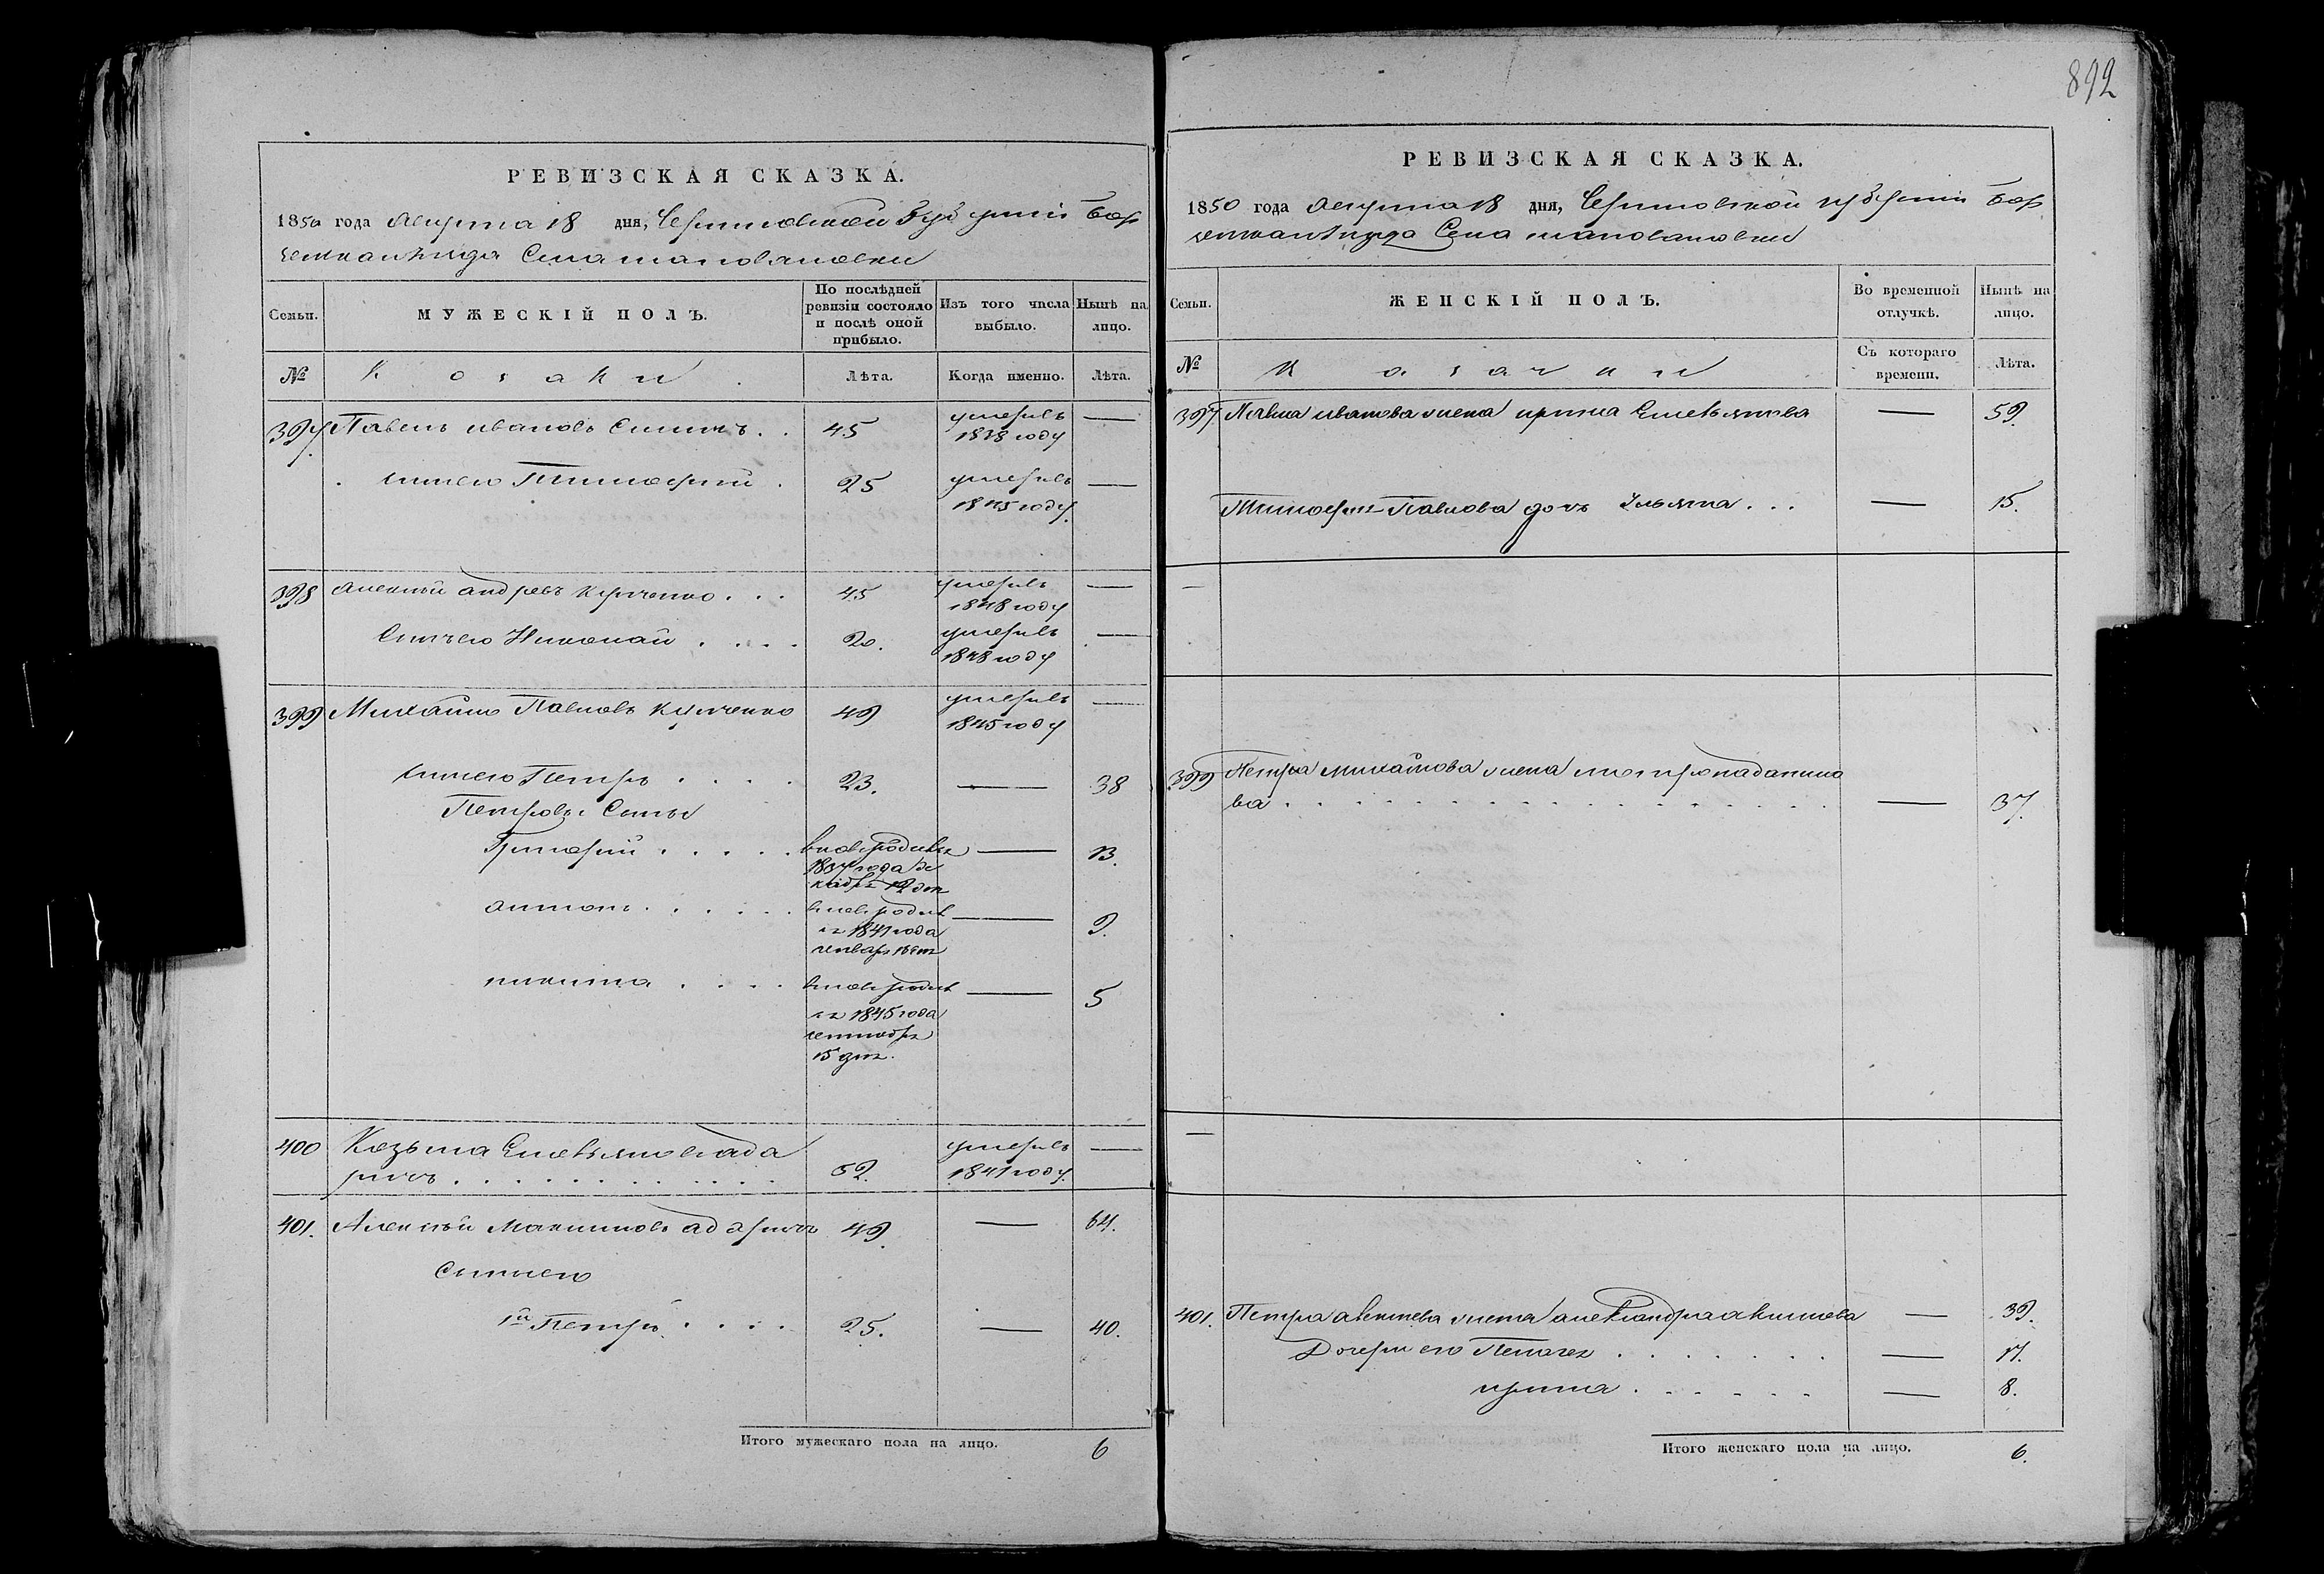 892
РЕВИЗСКАЯ СКАЗКА.
1850 года Августа 18 дня, Черниговской Губернiи Бор
Села
Семьи.
МУЖЕСКІЙ ПОЛЪ.
По послѣдней ревизіи состояло и послѣ оной прибыло.
Изъ того числа выбыло.
Нынѣ на лицо.
№
Козаки
Лѣта.
Когда именно.
Лѣта.
397 Павелъ Ивановъ . . 45 умеръ —
1838 году
сынъ его Тимофей . 25 умеръ —
1845 году
398 Алексѣй Андреевъ . . . 45 умеръ —
1848 году
Сынъ его Николай . . . . 20. умеръ —
1848 году
399 Михайло Павловъ 49 умеръ —
1845 году
сынъ его Петръ . . . . 23. — 38
Петровы Сыны
Григорий . . . . . вновь родився — 13.
1837 года де
кабря 12 дня
Антонъ . . . . . вновь родив — 9.
ся 1841 года
генваря
никита . . . . вновь родив — 5
ся 1845 года
сентября
15 дня.
400 Козьма Емельяновъ Ада
ричъ . . . . . . . . . . . 52. умеръ —
1841 году.
401. Алексѣй Максимовъ Адаричъ 49. — 64.
Сыны его
1й Петръ . . . . 25. — 40.
Итого мужескаго пола на лицо. 6
РЕВИЗСКАЯ СКАЗКА.
1850 года Августа 18 дня, Черниговской губернiи Бор
уезда Села
Семьи.
ЖЕНСКІЙ ПОЛЪ.
Во временной отлучкѣ.
Нынѣ на лицо.
№
Козачки
Съ котораго времени.
Лѣта.
397. Павла Иванова жена Ирина Емельянова — 59.
Тимофея Павлова дочь Ульяна . . . — 15.
—
399 Петра Михайлова жена
ва . . . . . . . . . . . . . — 37.
—
401. Петра Алексѣева жена Александра Акимова — 39.
Дочери его Пелагея . . . . . . . — 17.
Ирина . . . . . . — 8.
Итого женскаго пола на лицо. 6.